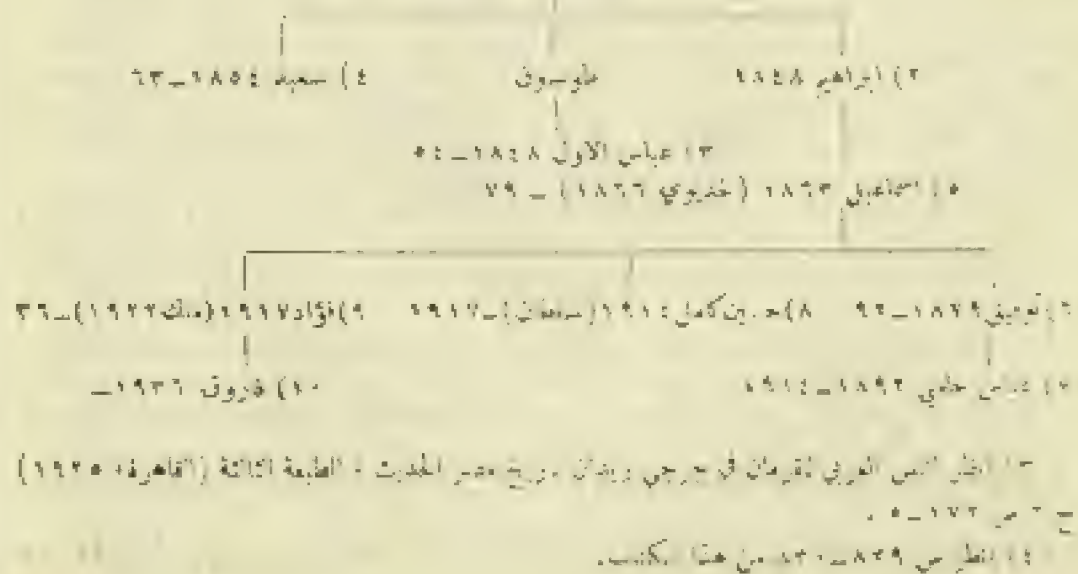 ٢) ابراهيم ١٨٤٨ طوسون ٤) سعيد ١٨٥٤ــ٦٣
٣) عباس الاول ١٨٤٨ــ٥٤
٥) اسماعيل ١٨٦٣ (خديوي ١٨٦٦) ــ ٧٩
٦) توفيق ١٨٧٩ــ٩٢ ٨) حسين كامل ١٩١٤ (سلطان)ــ١٩١٧ ٩) فؤاد ١٩١٧ (ملك ١٩٢٢)ــ٣٦
٧) عباس حلمي ١٨٩٢ــ١٩١٤ ١٠) فاروق ١٩٣٦ــ
٣) انظر النص العربي للفرمان في جرجي زيدان تاريخ مصر الحديث ، الطبعة الثالثة (القاهرة، ١٩٢٥)
ج ٢ ص ١٧٢ــ٥ .
٤) انظر ص ٨٢٩ــ٨٣٠ من هذا الكتاب.